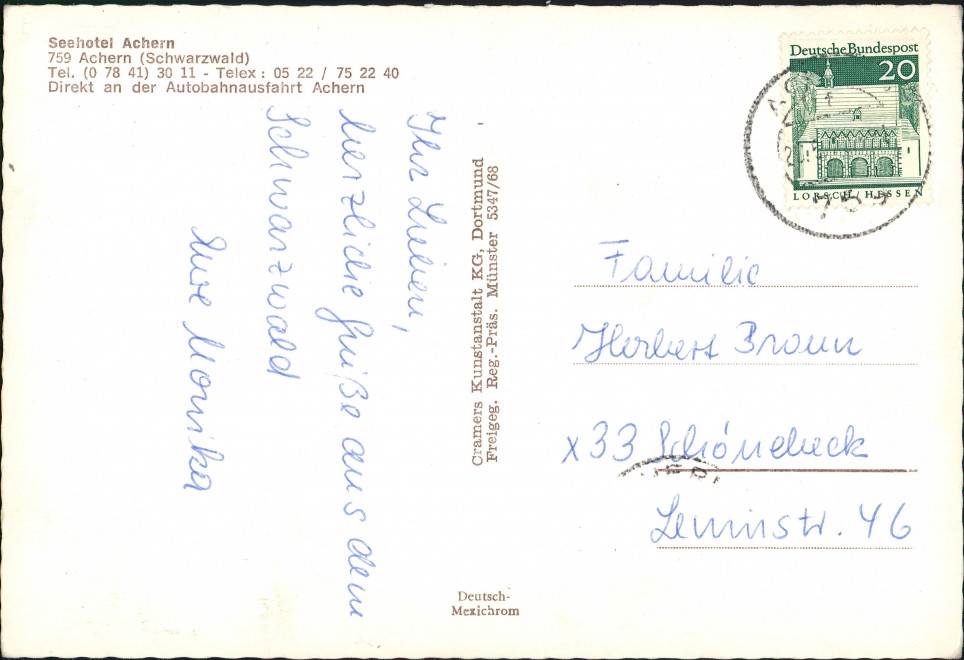 Seehotel Achern
759 Achern (Schwarzwald)
Tel. (0 78 41) 30 11 - Telex: 05 22 / 75 22 40
Direkt an der Autobahnausfahrt Achern
Ihr Lieben,
herzliche Grüße aus dem
Schwarzwald
Eure Monika
Cramers Kunstanstalt KG, Dortmund
Freigeg. Reg.-Präs. Münster 5347/68
Deutsch-
Mexichrom
Deutsche Bundespost
20
LORSCH/HESSEN
759
Familie
Herbert Braun
x33 Schönebeck
Leninstr. 46